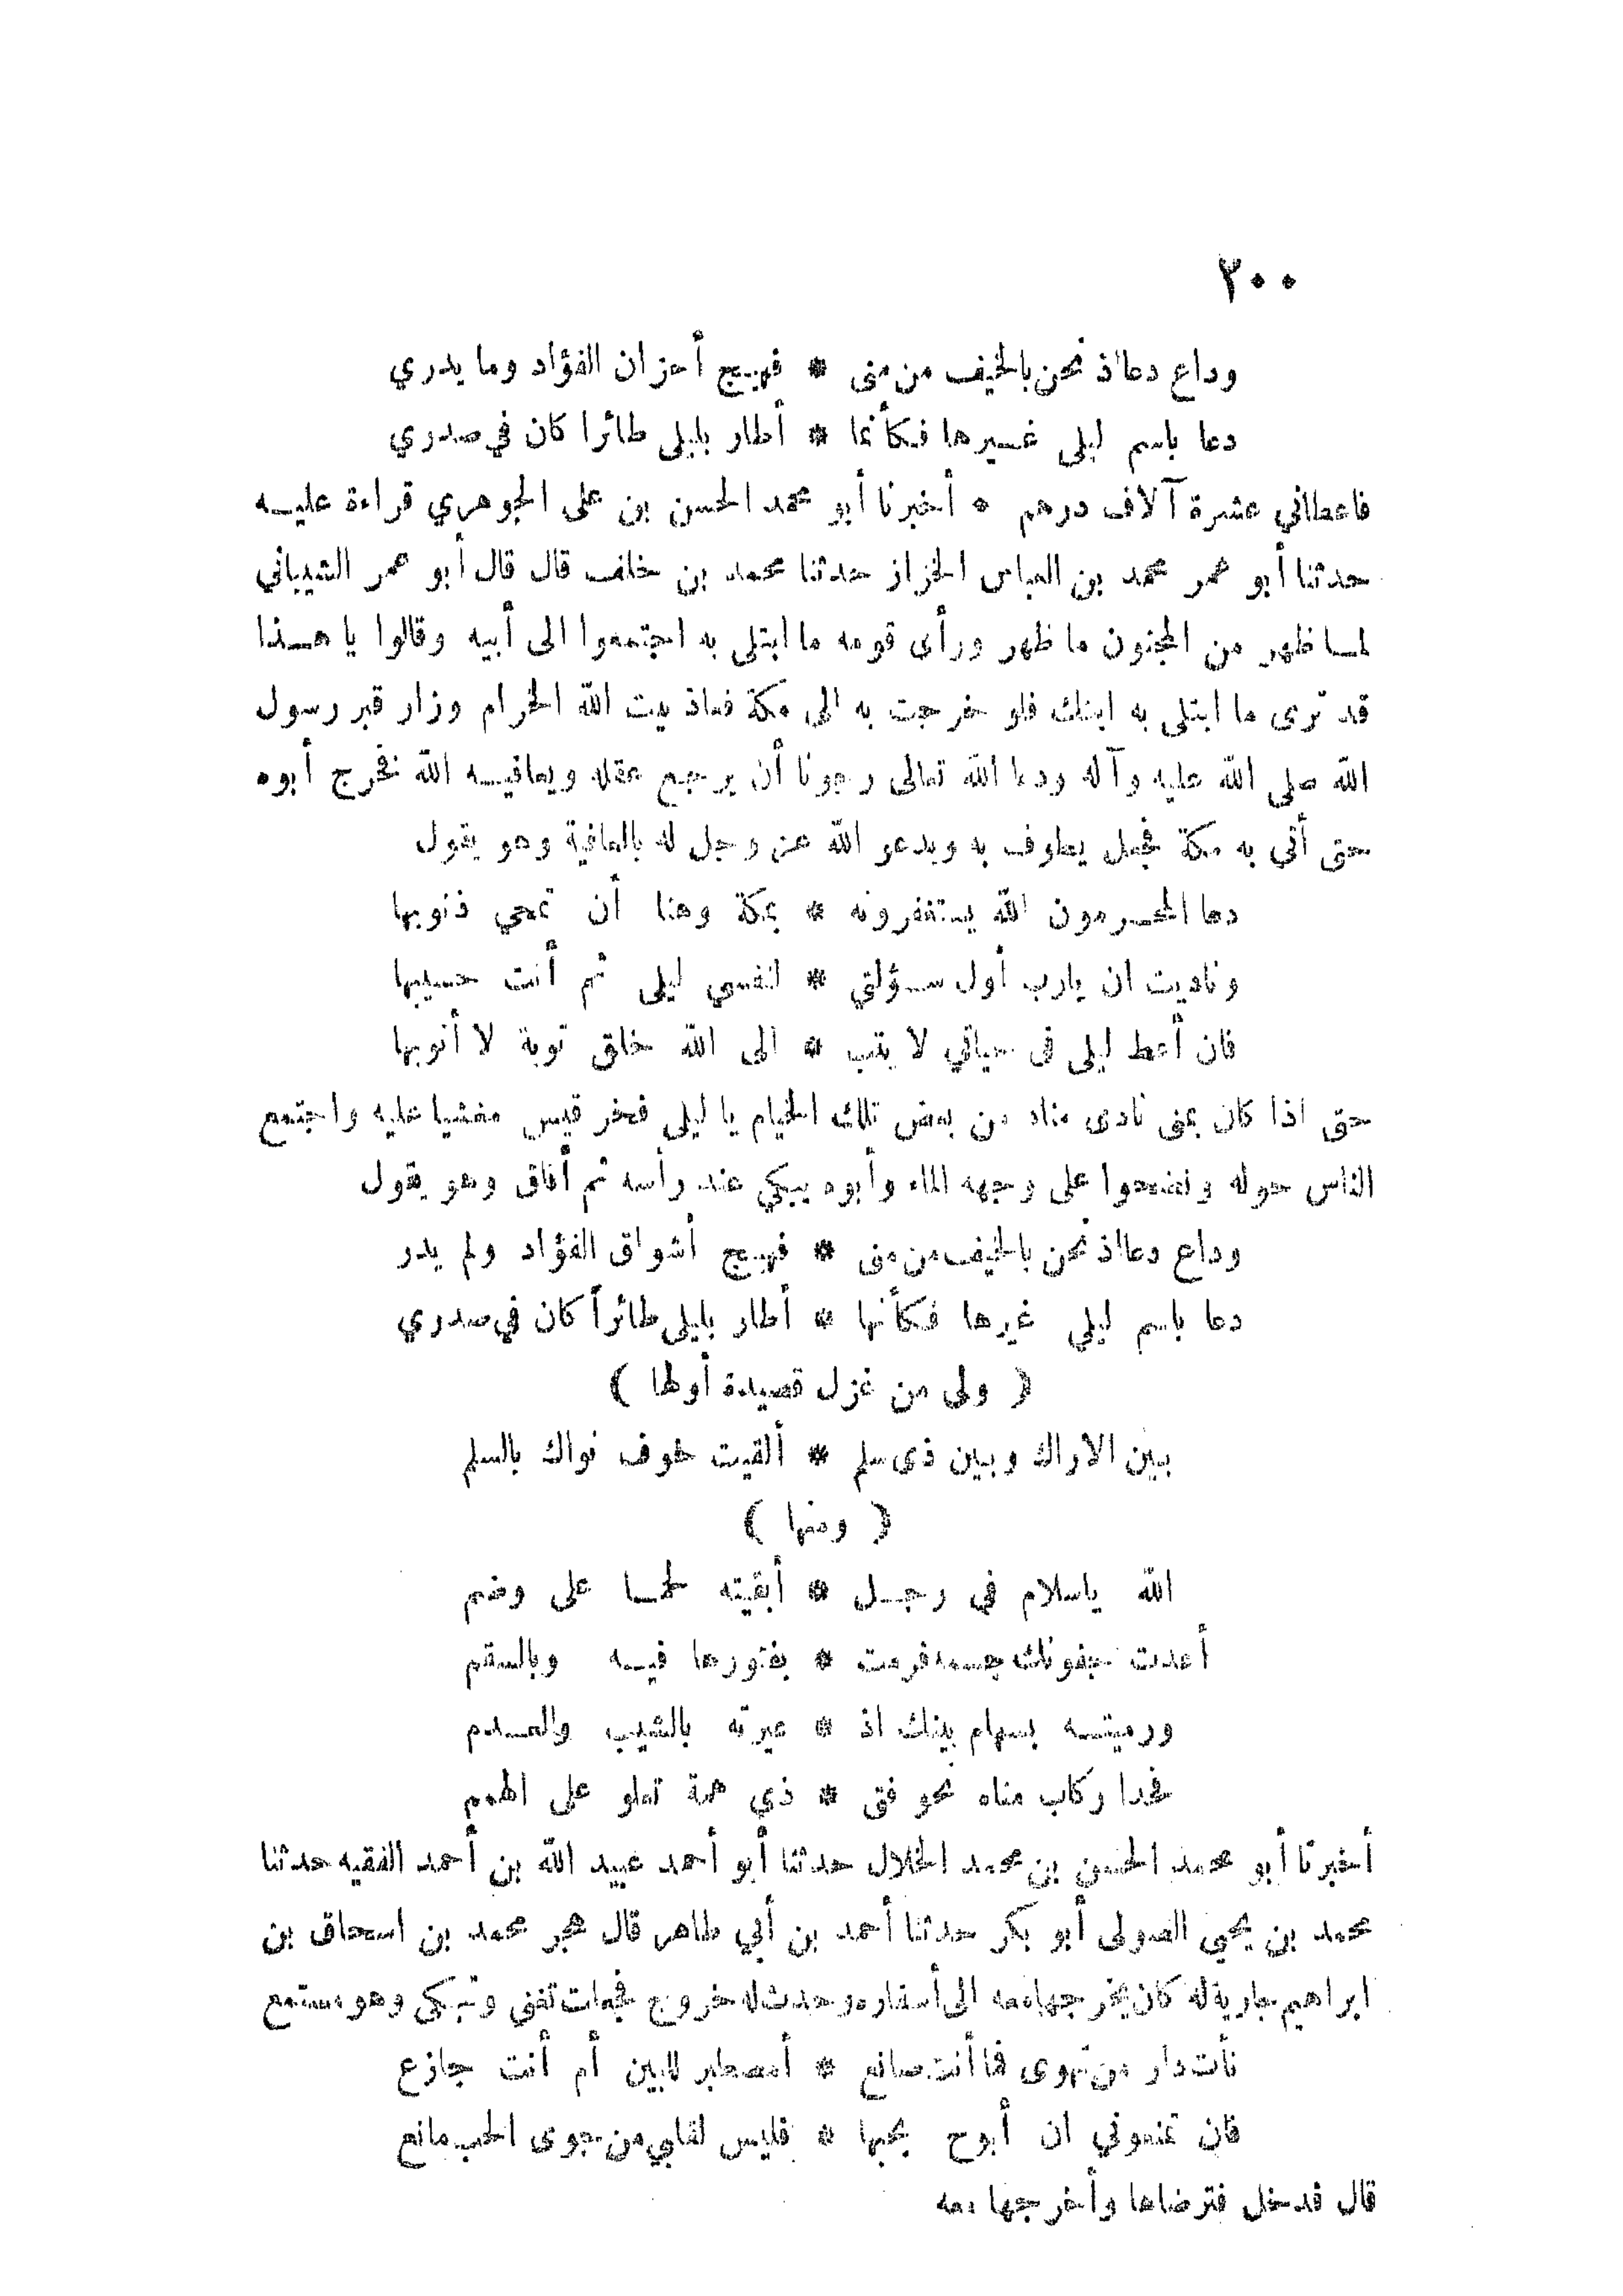 ٣٠٠
وداع دعا اذ نحن بالخيف من منى * فهيج أحزان الفؤاد وما يدري
دعا باسم ليلى غيرها فكأنما * أطار بليلى طائرا كان في صدري
فاعطاني عشرة آلاف درهم * أخبرنا أبو محمد الحسن بن على الجوهري قراءة عليه
حدثنا أبو عمر محمد بن العباس الخزاز حدثنا محمد بن خلف قال قال أبو عمر الشيباني
لما ظهر من المجنون ما ظهر ورأى قومه ما ابتلى به اجتمعوا الى أبيه وقالوا يا هذا
قد ترى ما ابتلى به ابنك فلو خرجت به الى مكة فعاذ ببيت الله الحرام وزار قبر رسول
الله صلى الله عليه وآله ودعا الله تعالى رجونا أن يرجع عقله ويعافيه الله فخرج أبوه
حتى أتى به مكة فجعل يطوف به ويدعو الله عز وجل له بالعافية وهو يقول
دعا المحرمون الله يستغفرونه * بمكة وهنا أن تمحى ذنوبها
وناديت ان يارب أول سؤلتي * لنفسي ليلى ثم أنت حسيبها
فان أعط ليلى فى حياتي لا يتب * الى الله خلق توبة لا أتوبها
حتى اذا كان بمنى نادى مناد من بعض تلك الخيام يا ليلى فخر قيس مغشيا عليه واجتمع
الناس حوله ونضحوا على وجهه الماء وأبوه يبكي عند رأسه ثم أفاق وهو يقول
وداع دعا اذ نحن بالخيف من منى * فهيج أشواق الفؤاد ولم يدر
دعا باسم ليلى غيرها فكأنها * أطار بليلى طائراً كان في صدري
( ولى من غزل قصيدة أولها )
بين الاراك وبين ذى سلم * ألقيت خوف نواك بالسلم
( ومنها )
الله ياسلام في رجل * أبقيته لحما على وضم
أعدت جفونك جسمه فرمت * بفتورها فيه وبالسقم
ورميته بسهام بينك اذ * عيرته بالشيب والعدم
فحدا ركاب مناه نحو فتى * ذي همة تعلو على الهمم
أخبرنا أبو محمد الحسن بن محمد الخلال حدثنا أبو أحمد عبيد الله بن أحمد الفقيه حدثنا
محمد بن يحيى الصولى أبو بكر حدثنا أحمد بن أبي طاهر قال هجر محمد بن اسحاق بن
ابراهيم جارية له كان يخرجها معه الى أسفاره وحدث له خروج فجعلت تغنى وتبكى وهو مستمع
نأت دار من تهوى فما أنت صانع * أمصطبر للبين أم أنت جازع
فان تمنعوني ان أبوح بحبها * فليس لقلبي من جوى الحب مانع
قال فدخل فترضاها وأخرجها معه